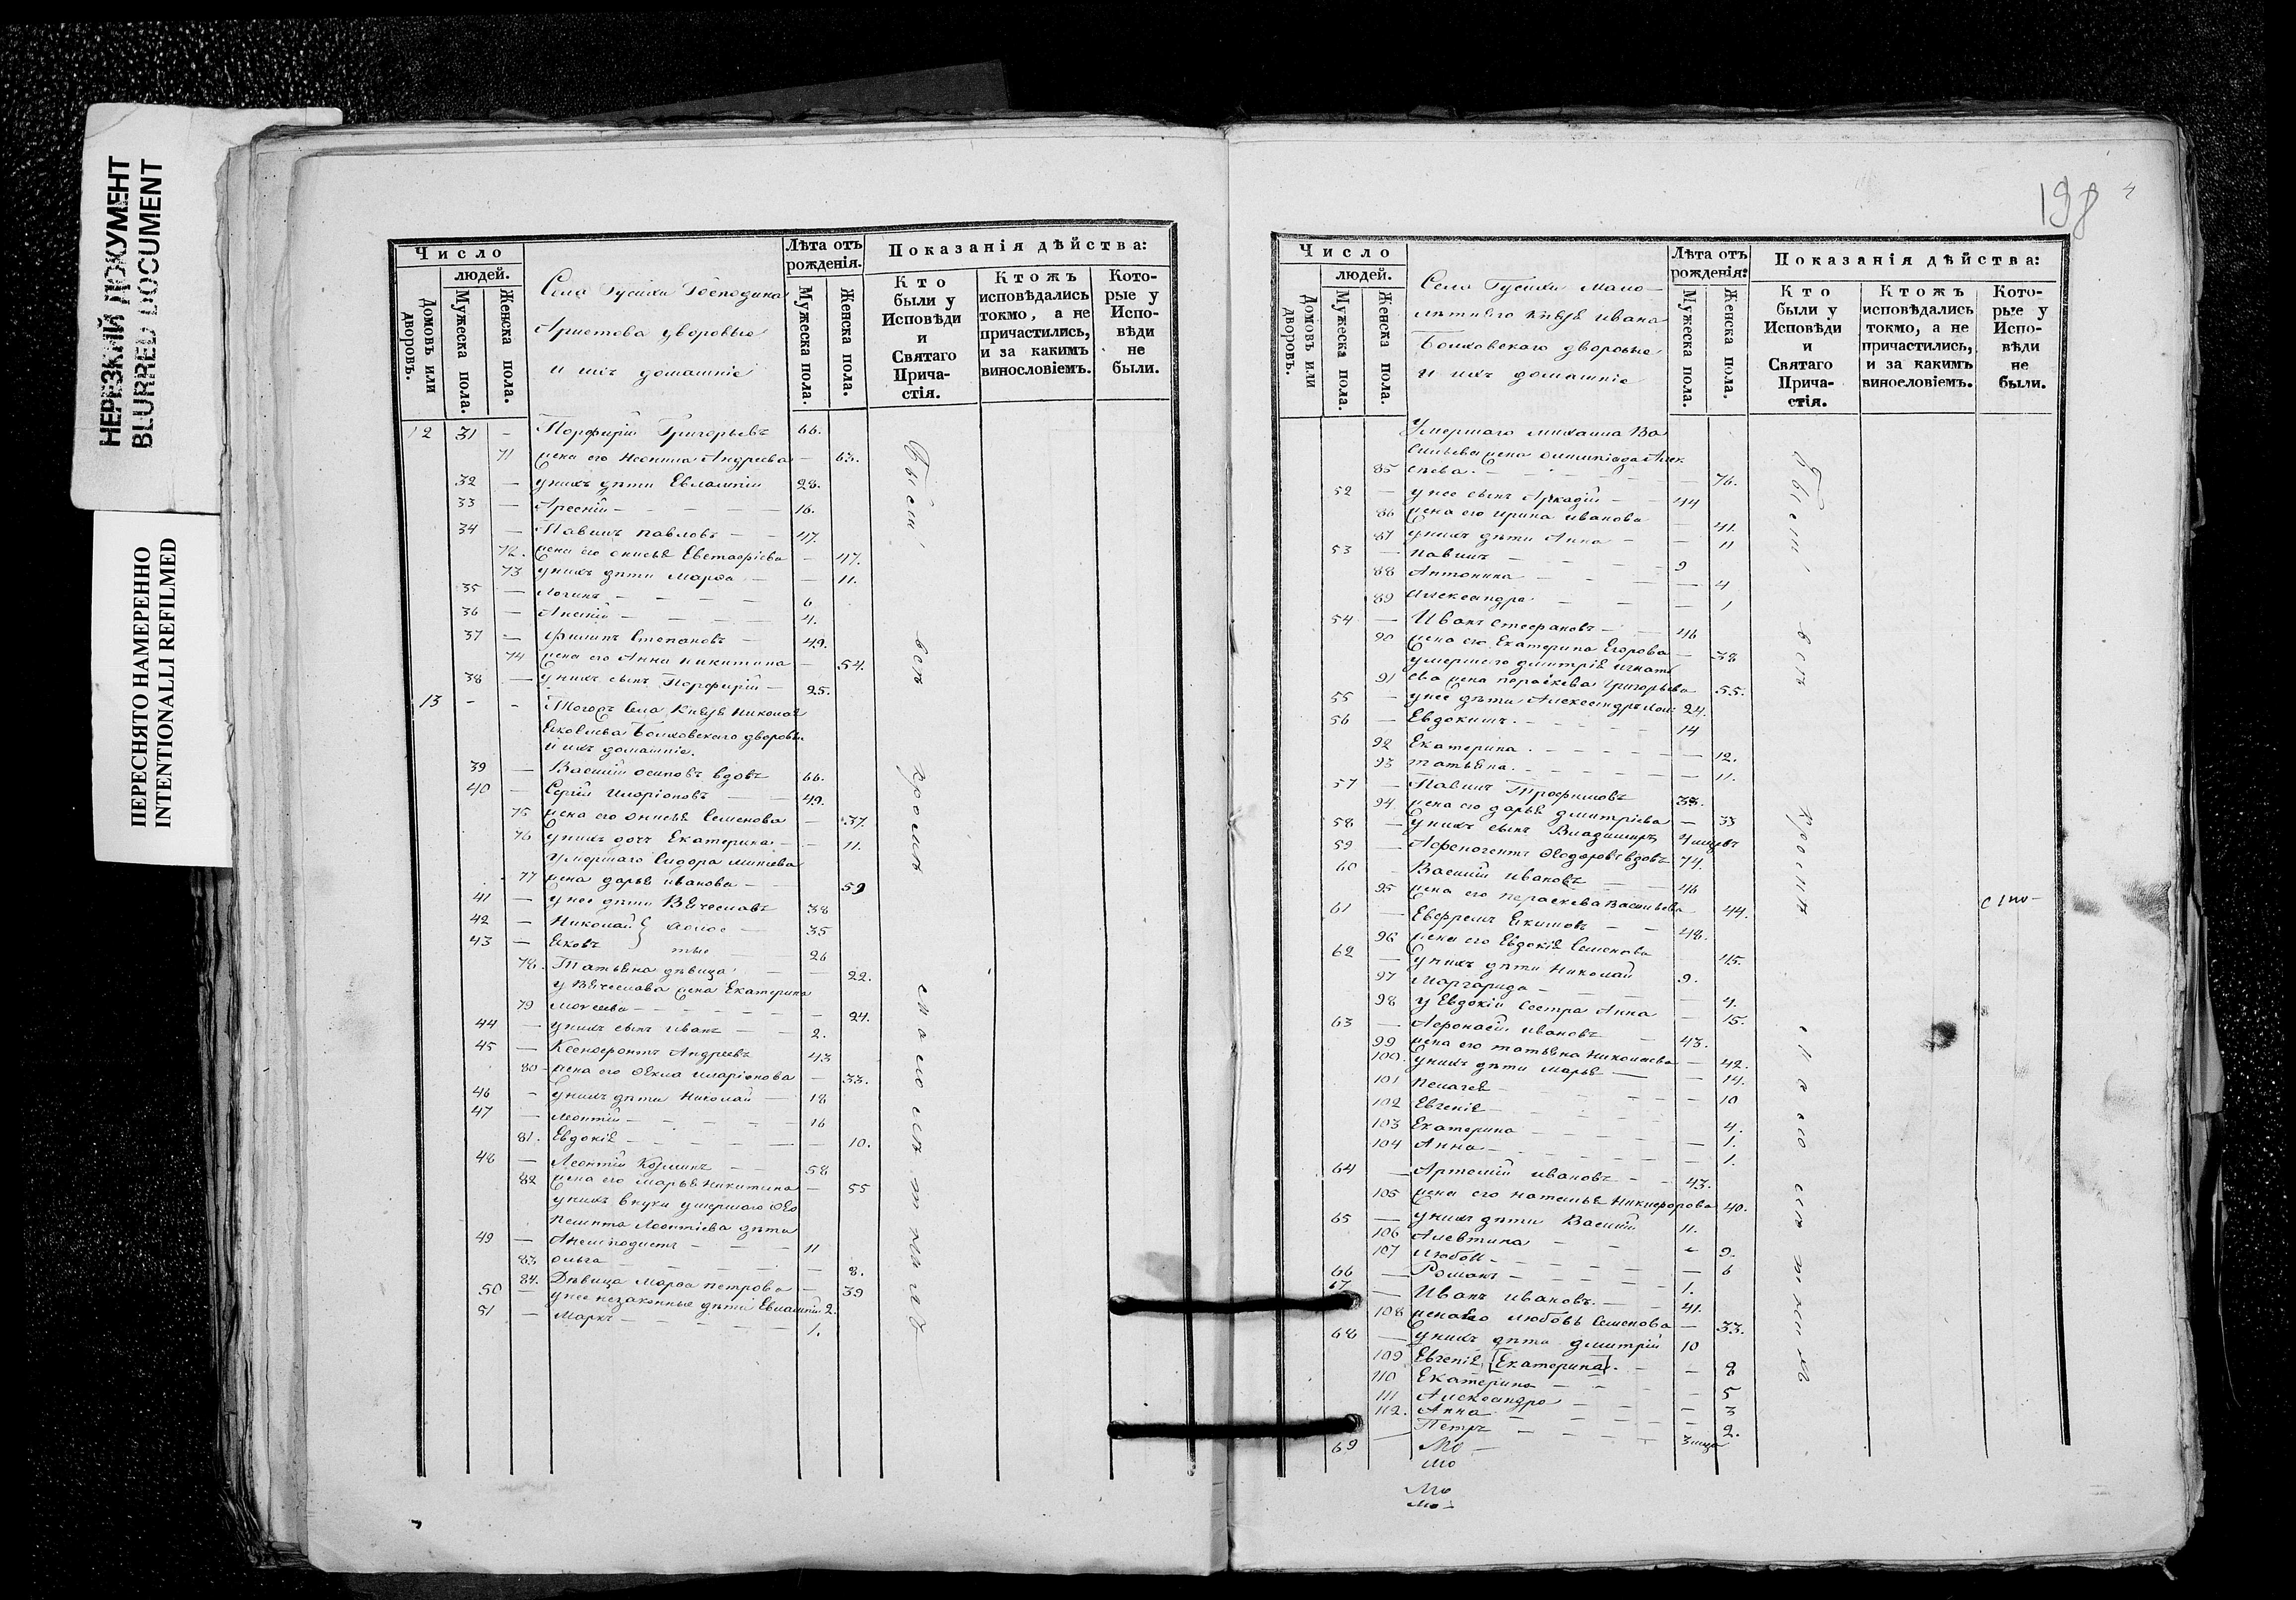 НЕРІЗКИЙ ДОКУМЕНТ
BLURRED DOCUMENT
ПЕРЕСНЯТО НАМЕРЕННО
INTENTIONALLI REFILMED
Число
людей.
Домовъ или дворовъ.
Мужеска пола.
Женска пола.
Село Гусихи Господина
Аристова дворовые
и ихъ домашніе
Лѣта отъ рожденія.
Мужеска пола.
Женска пола.
Показанія дѣйства:
Кто были у Исповѣди и Святаго Причастія.
Ктожъ исповѣдались токмо, а не причастились, и за какимъ винословіемъ.
Которые у Исповѣди не были.
12 31 - Порфирій Григорьевъ 66.
71 жена его Неонила Андреева - 63.
32 - у нихъ дѣти Евлампій 28.
33 - Арсеній - 16.
34 - Павелъ Павловъ - 47.
72. жена его Евстафіева - 47.
73 у нихъ дѣти Марѳа - 11.
35 - Логинъ - 6
36 - 4.
37 - Филипъ Степановъ - 49.
74 жена его Анна Никитина - 54.
38 - у нихъ сынъ Порфирій - 25.
13 - - Тогожъ села Князя Николая
Яковлева Болховскаго дворовые
и ихъ домашніе.
39 - Василій Осиповъ вдовъ 66.
40 - Сергій Иларіоновъ - 49.
75 жена его Анисья Семенова - 37.
76 у нихъ дочь Екатерина - 11.
Умершаго Сидора
77 жена Дарья Иванова - 59
41 - у нее дѣти Вячеславъ 38
42 - Николай } холос - 35
43 - Яковъ } тые 26
78. Татьяна дѣвица - 22.
у Вячеслава жена Екатерина
79 Моисеева - 24.
44 - у нихъ сынъ Иванъ - 2.
45 - Ксенофонтъ Андреевъ 43
80 - жена его Ѳекла Иларіонова - 33.
46 - у нихъ дѣти Николай - 18
47 - Леонтій - 16
81. Евдокія - 10.
48 - Леонтій Козминъ - 58
82 жена его Марья Никитина - 55
у нихъ внуки умершаго Ѳео
пемпта Леонтіева дѣти
49 - Анемподистъ - 11
83 Ольга - 8.
84. Дѣвица Марѳа Петрова - 39
50 - у нее незаконные дѣти Евлампій 2.
51 - Маркъ - 1.
Были всѣ кромѣ малолѣтнихъ
198
4
Число
людей.
Домовъ или дворовъ.
Мужеска пола.
Женска пола.
Село Гусихи мало-
лѣтнего Князя Ивана
Болховскаго дворовые
и ихъ домашніе
Лѣта отъ рожденія:
Мужеска пола.
Женска пола.
Показанія дѣйства:
Кто были у Исповѣди и Святаго Причастія.
Ктожъ исповѣдались токмо, а не причастились, и за какимъ винословіемъ.
Которые у Исповѣди не были.
Умершаго Михаила Ва
сильева жена Олимпіада Алек
85 сѣева - 76.
52 - у нее сынъ Аркадій - 44
86 жена его Ирина Иванова - 41.
87 у нихъ дѣти Анна - 11
53 - Павелъ - 9
88 Антонина - 4
89 Александра - 1
54 - Иванъ Стефановъ - 46
90 жена его Екатерина Егорова - 38
умершего Дмитрія Игнать
91 ева жена Параскева Григорьева 55.
55 - у нее дѣти Александръ хол: 24.
56 - Евдокимъ. - 14
92 Екатерина. - 12.
93 Татьяна. - 11.
57 - Павелъ Трофимовъ 33.
94 жена его Дарья Дмитріева - 33
58 - у нихъ сынъ Владимиръ 4 мѣсцвъ
59 - Афеногентъ Ѳедоровъ вдовъ 74.
60 Василій Ивановъ - 46
95 жена его Параскева Васильева 44.
61 - Ефремъ Екимовъ - 48.
96 жена его Евдокія Семенова 45.
62 - у нихъ дѣти Николай 9.
97 Маргарида - 4.
98 у Евдокіи сестра Анна - 15.
63 - Афонасій Ивановъ - 43.
99 жена его Татьяна Николаева - 42.
100. у нихъ дѣти Марья - 14.
101 Пелагея - 10
102 Евгенія -
103 Екатерина - 4.
104 Анна - 1.
1.
64 - Артемій Ивановъ - 43.
105 жена его Наталья Никифорова 40.
65 - у нихъ дѣти Василій 11.
106 Алевтина - 9.
107 Любовь - 6
66 - Романъ - 1.
67 - Иванъ Ивановъ. - 41.
108 жена его Любовь Семенова - 33.
68 - у нихъ дѣти Дмитрій 10
109 Евгенія, [Екатерина]. - 8
110 Екатерина - 5
111 Александра - 3
112. Анна - 2.
69 - Петръ - 3 мѣсца
Мо
Мо
Мо
Мо
Были всѣ кромѣ малолѣтнихъ